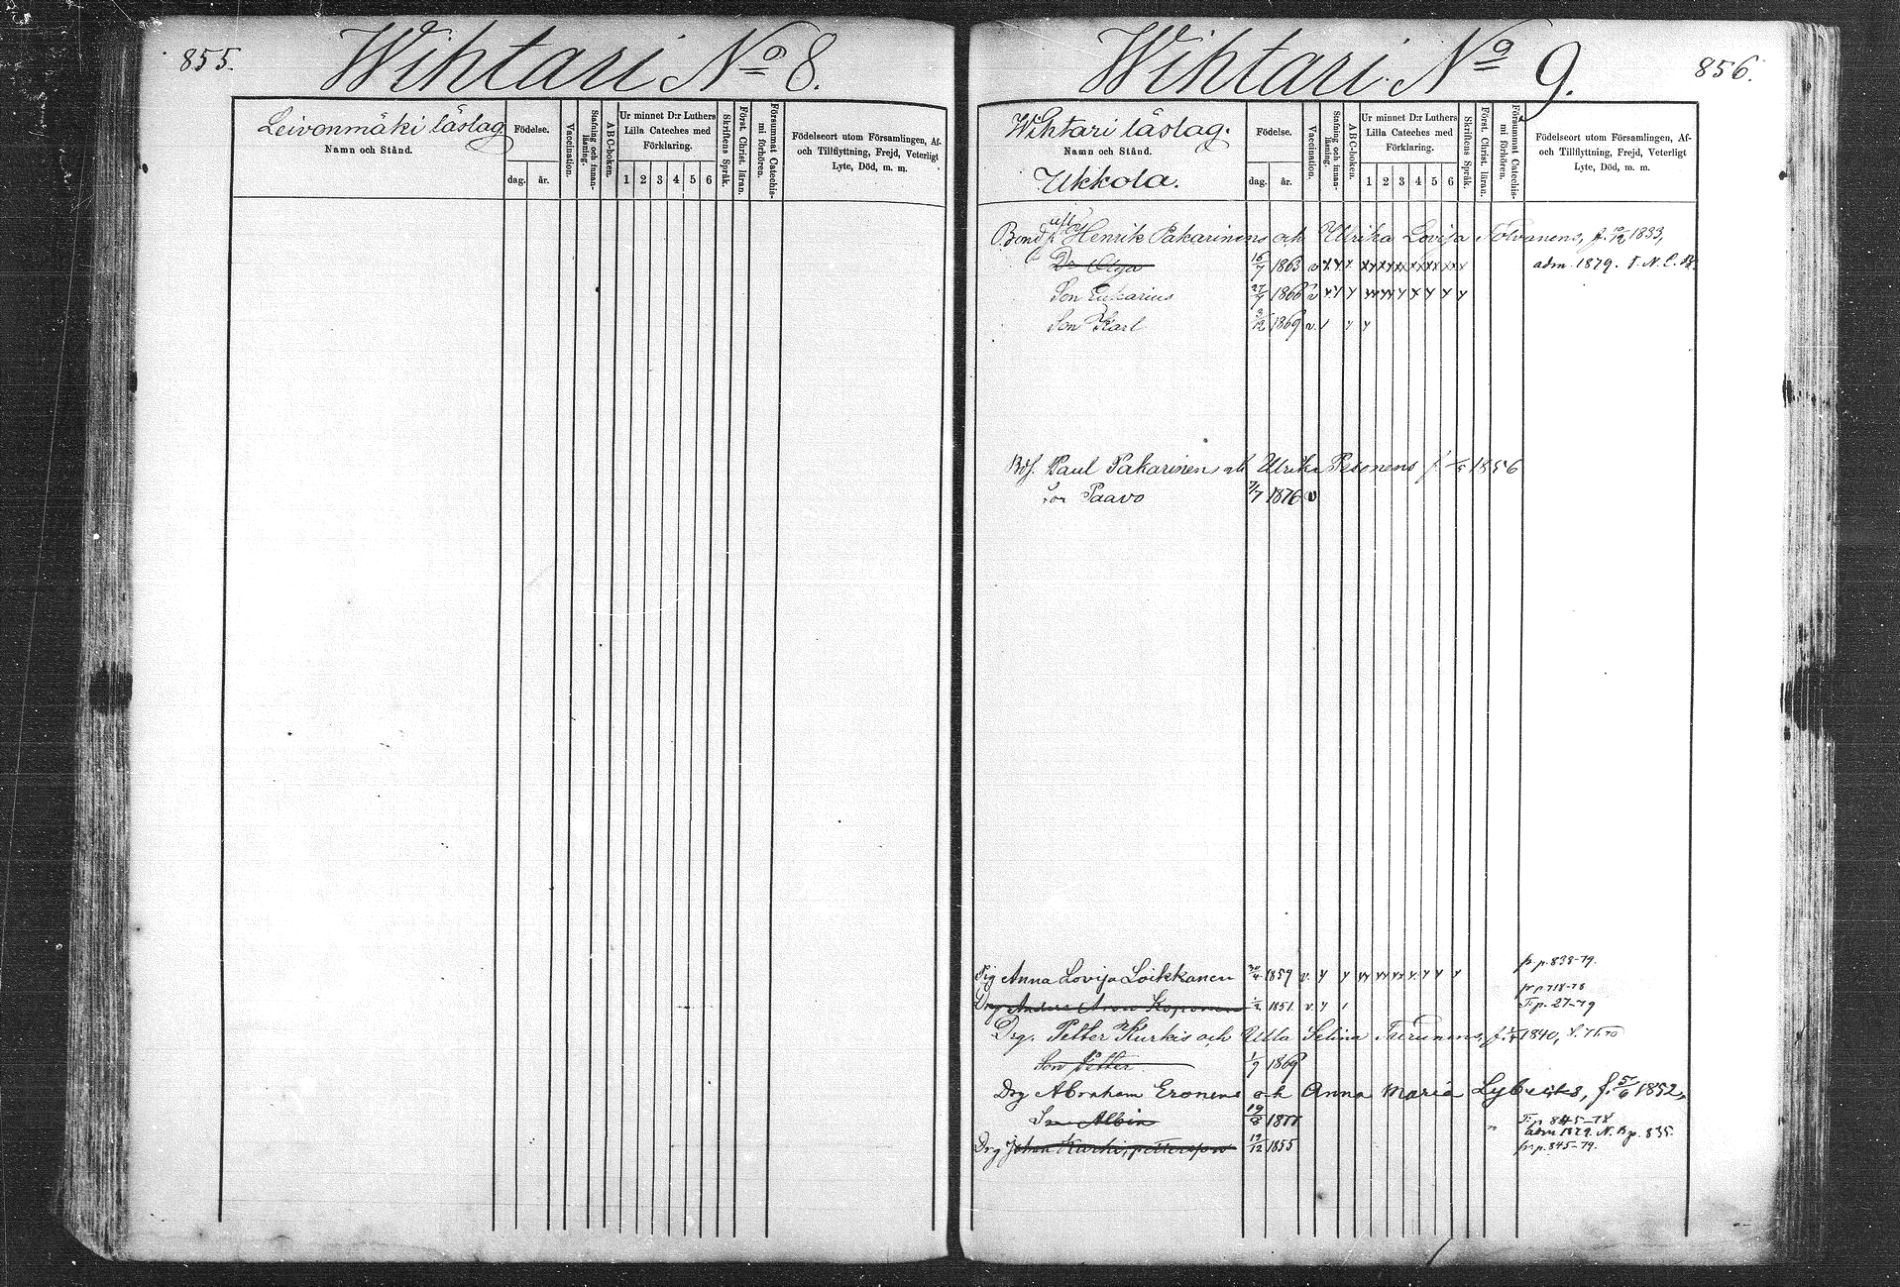 855.
Wihtari No 8.
Leivonmäki läslag
Namn och Stånd.
Födelse.
dag. år.
Vaccination.
Stafning och innan-
läsning.
ABC-boken.
Ur minnet D:r Luthers
Lilla Cateches med
Förklaring.
1 2 3 4 5 6
Skriftens Språk.
Först. Christ. läran.
Försummat Catechis-
mi förhören.
Födelseort utom Församlingen, Af-
och Tillflyttning, Frejd, Veterligt
Lyte, Död, m. m.
856.
Wihtari No 9.
Wihtari läslag.
Namn och Stånd.
Ukkola.
Födelse.
dag. år.
Vaccination.
Stafning och innan-
läsning.
ABC-boken.
Ur minnet D:r Luthers
Lilla Cateches med
Förklaring.
1 2 3 4 5 6
Skriftens Språk.
Först. Christ. läran.
Försummat Catechis-
mi förhören.
Födelseort utom Församlingen, Af-
och Tillflyttning, Frejd, Veterligt
Lyte, Död, m. m.
Bond Henrik Pakarinens och Ulrika Lovisa Tolvanens, f. 1833,
Dr Olga 16/7 1863 v adm. 1879.
Son Eukarius 27/9 1866 v
Son Karl 3/12 1869 v.
Paul Pakarinen Ulrika Pesonens f. 1856
Son Paavo 7/7 1876 v
Pig Anna Lovisa Loikkanen 1859 v. fr p. 838-79.
fr p 718-78
Drg Anders Aron Koponen 1851. v. T. p. 27-79
Drg. Petter Kurkis och Ulla Selina Turunens, f. 1840,
Son Petter 1/9 1869
Drg Abraham Eronens och Anna Maria f. 5/6 1852,
Son Albin 19/8 1877 T. p. 845-78
adm 1879. N. B p. 835.
Drg Johan Kurki, pettersson 19/12 1855 fr p. 845-79.